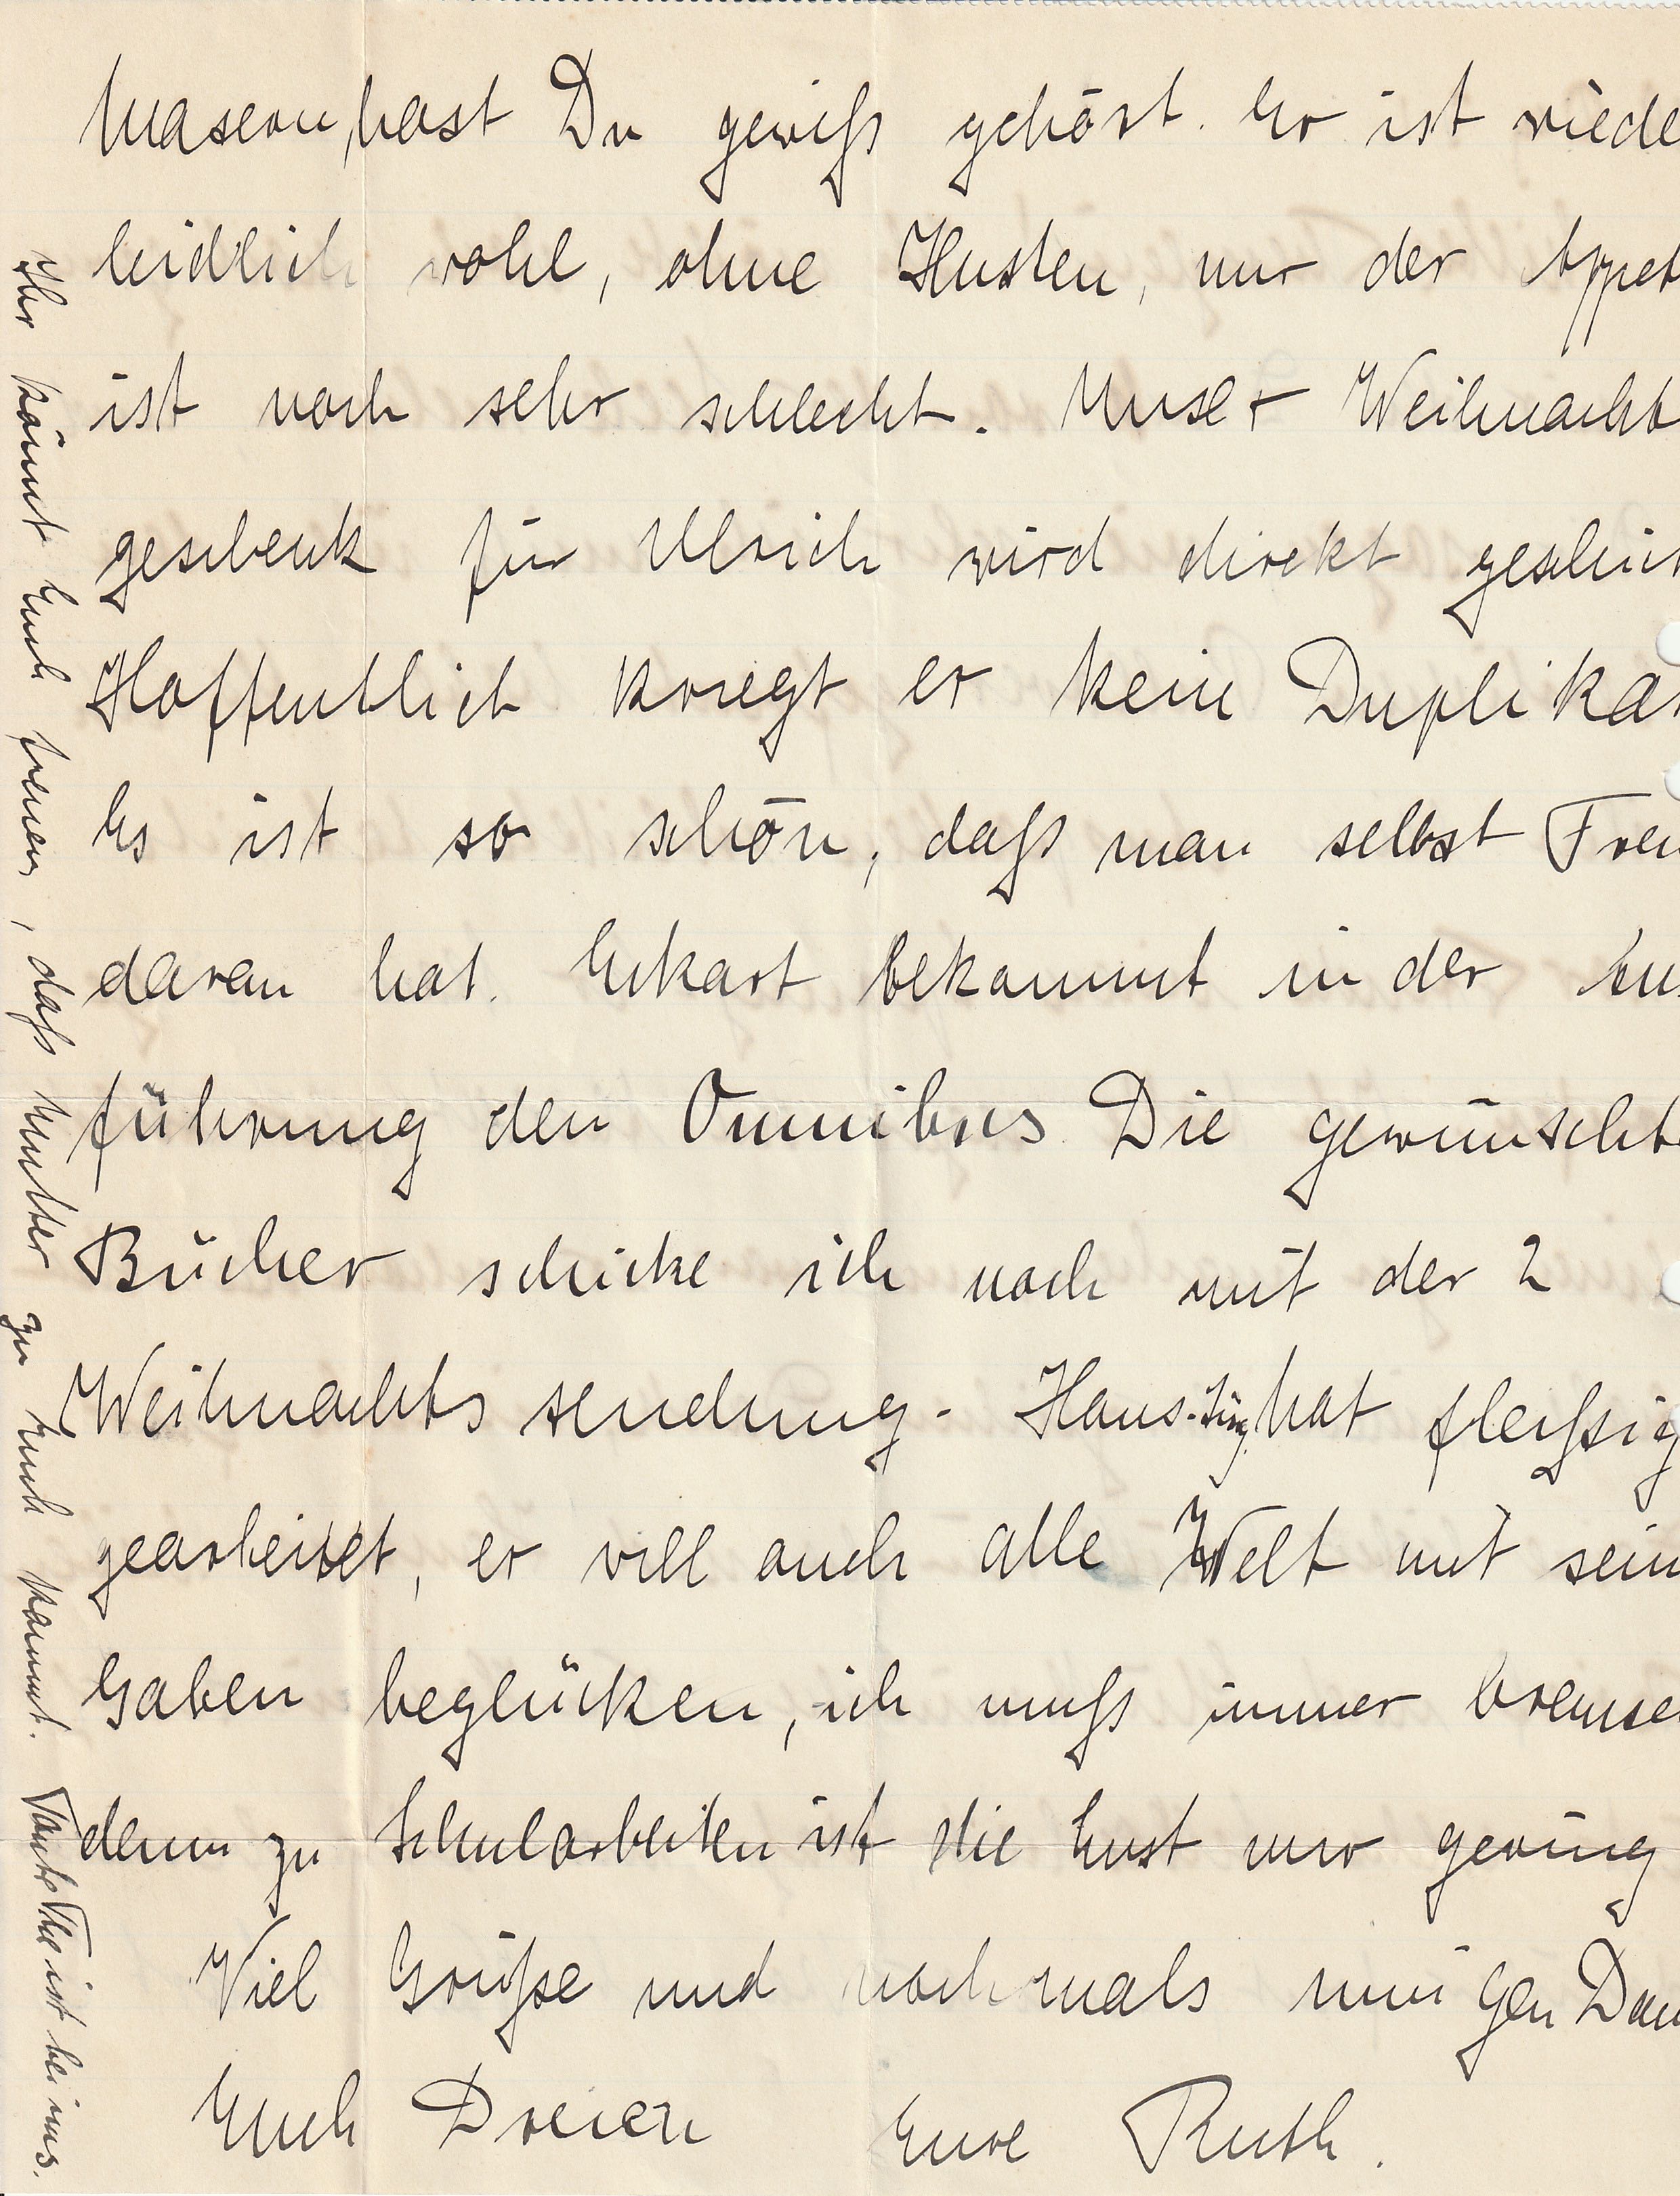 Masern, hast Du gewiß gehört. Er ist wiede
leidlich wohl, ohne Husten, nur der Appet
ist noch sehr schlecht. Unser Weihnachts
geschenk für Ulrich wird direkt geschick
Hoffentlich kriegt er kein Duplikat
Es ist so schön, daß man selbst Freu
daran hat. Eckart bekommt in der Aus
führung den Omnibus. Die gewünschte
Bücher schicke ich noch mit der 2
Weihnachtssendung. Hans-Jürg hat fleißig
gearbeitet, er will auch alle Welt mit sein
Gaben beglücken, ich muß immer bremse
denn zu Schularbeiten ist die Lust nur gering
Viel Grüße und nochmals innigen Dan
Euch Dreien Eure Ruth.
Ihr könnt Euch freuen, daß Mutter zu Euch kommt. Tante The ist bei uns.